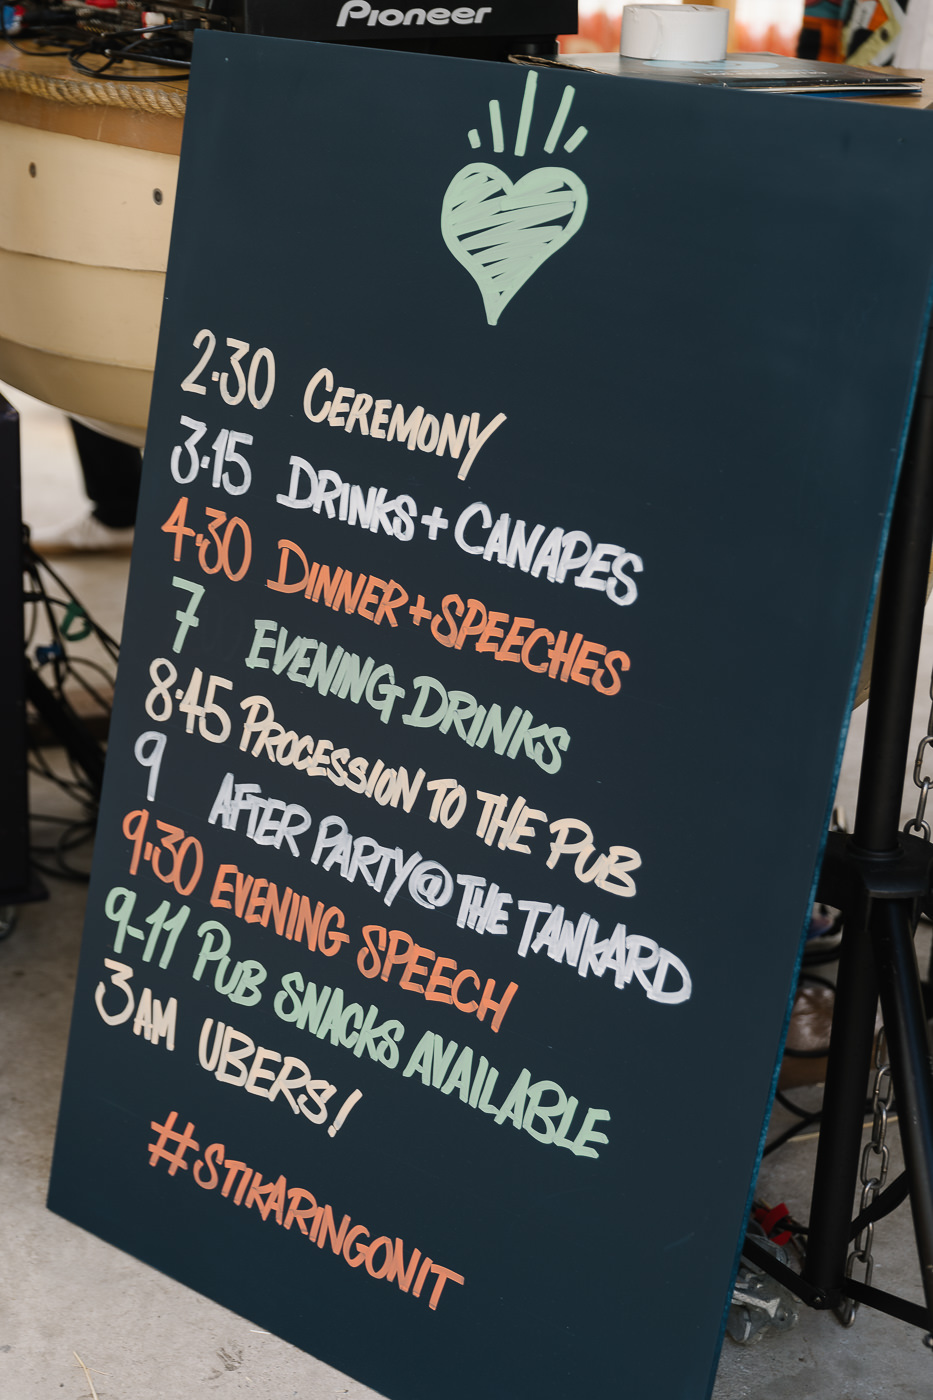 Pioneer
2.30 CEREMONY
3.15 DRINKS + CANAPES
4.30 DINNER + SPEECHES
7 EVENING DRINKS
8.45 PROCESSION TO THE PUB
9 AFTER PARTY @ THE TANKARD
9.30 EVENING SPEECH
9-11 PUB SNACKS AVAILABLE
3AM UBERS!
#STIKARINGONIT